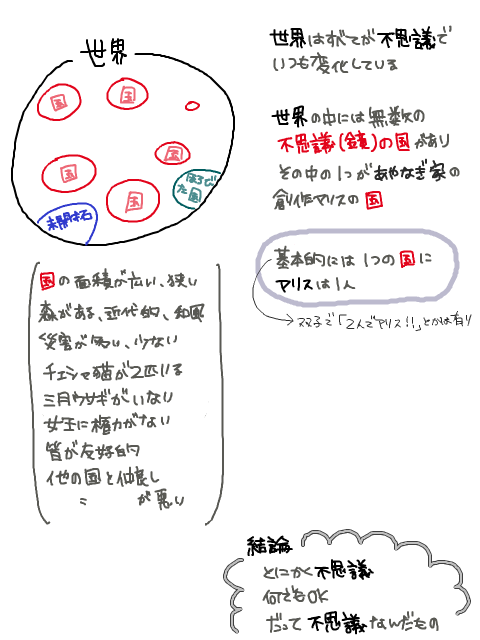 世界
国
国
国
国
国
ほろびた国
未開拓
世界はすべてが不思議で
いつも変化している
世界の中には無数の
不思議(鏡)の国があり
その中の1つがあやなぎ家の
創作アリスの国
基本的には1つの国に
アリスは1人
双子で「2人でアリス!!」とかは有り
国の面積が広い、狭い
森がある、近代的、和風
災害が多い、少ない
チェシャ猫が2匹いる
三月ウサギがいない
女王に権力がない
皆が友好的
他の国と仲良し
〃 が悪い
結論
とにかく不思議
何でもOK
だって不思議なんだもの